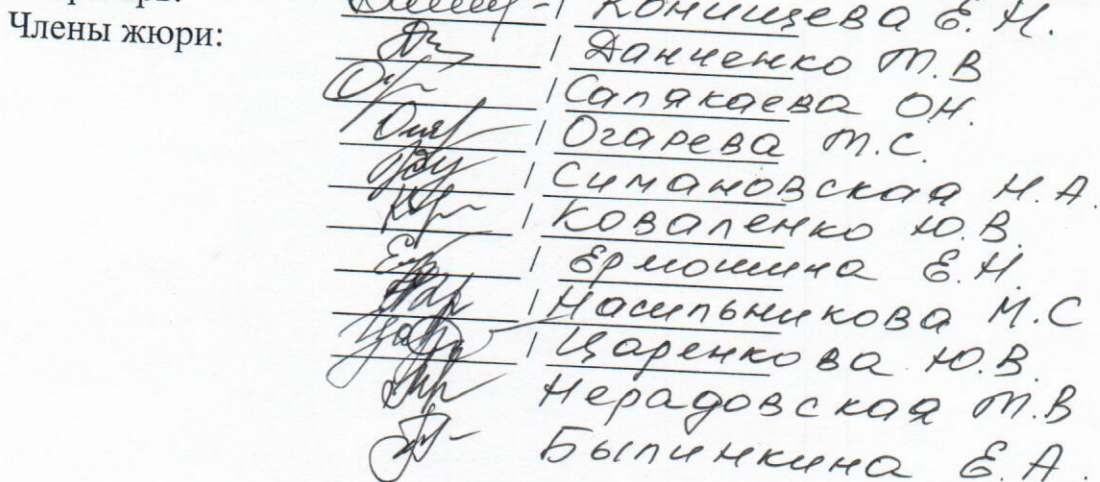 Конищева Е.Н.
Члены жюри:
Данченко Т.В
Сапакаева О.Н.
Огарева Т.С.
Симановская Н.А.
Коваленко Ю.В.
Ермошина Е.Н.
Насильникова М.С
Царенкова Ю.В.
Нерадовская Т.В
Былинкина Е.А.